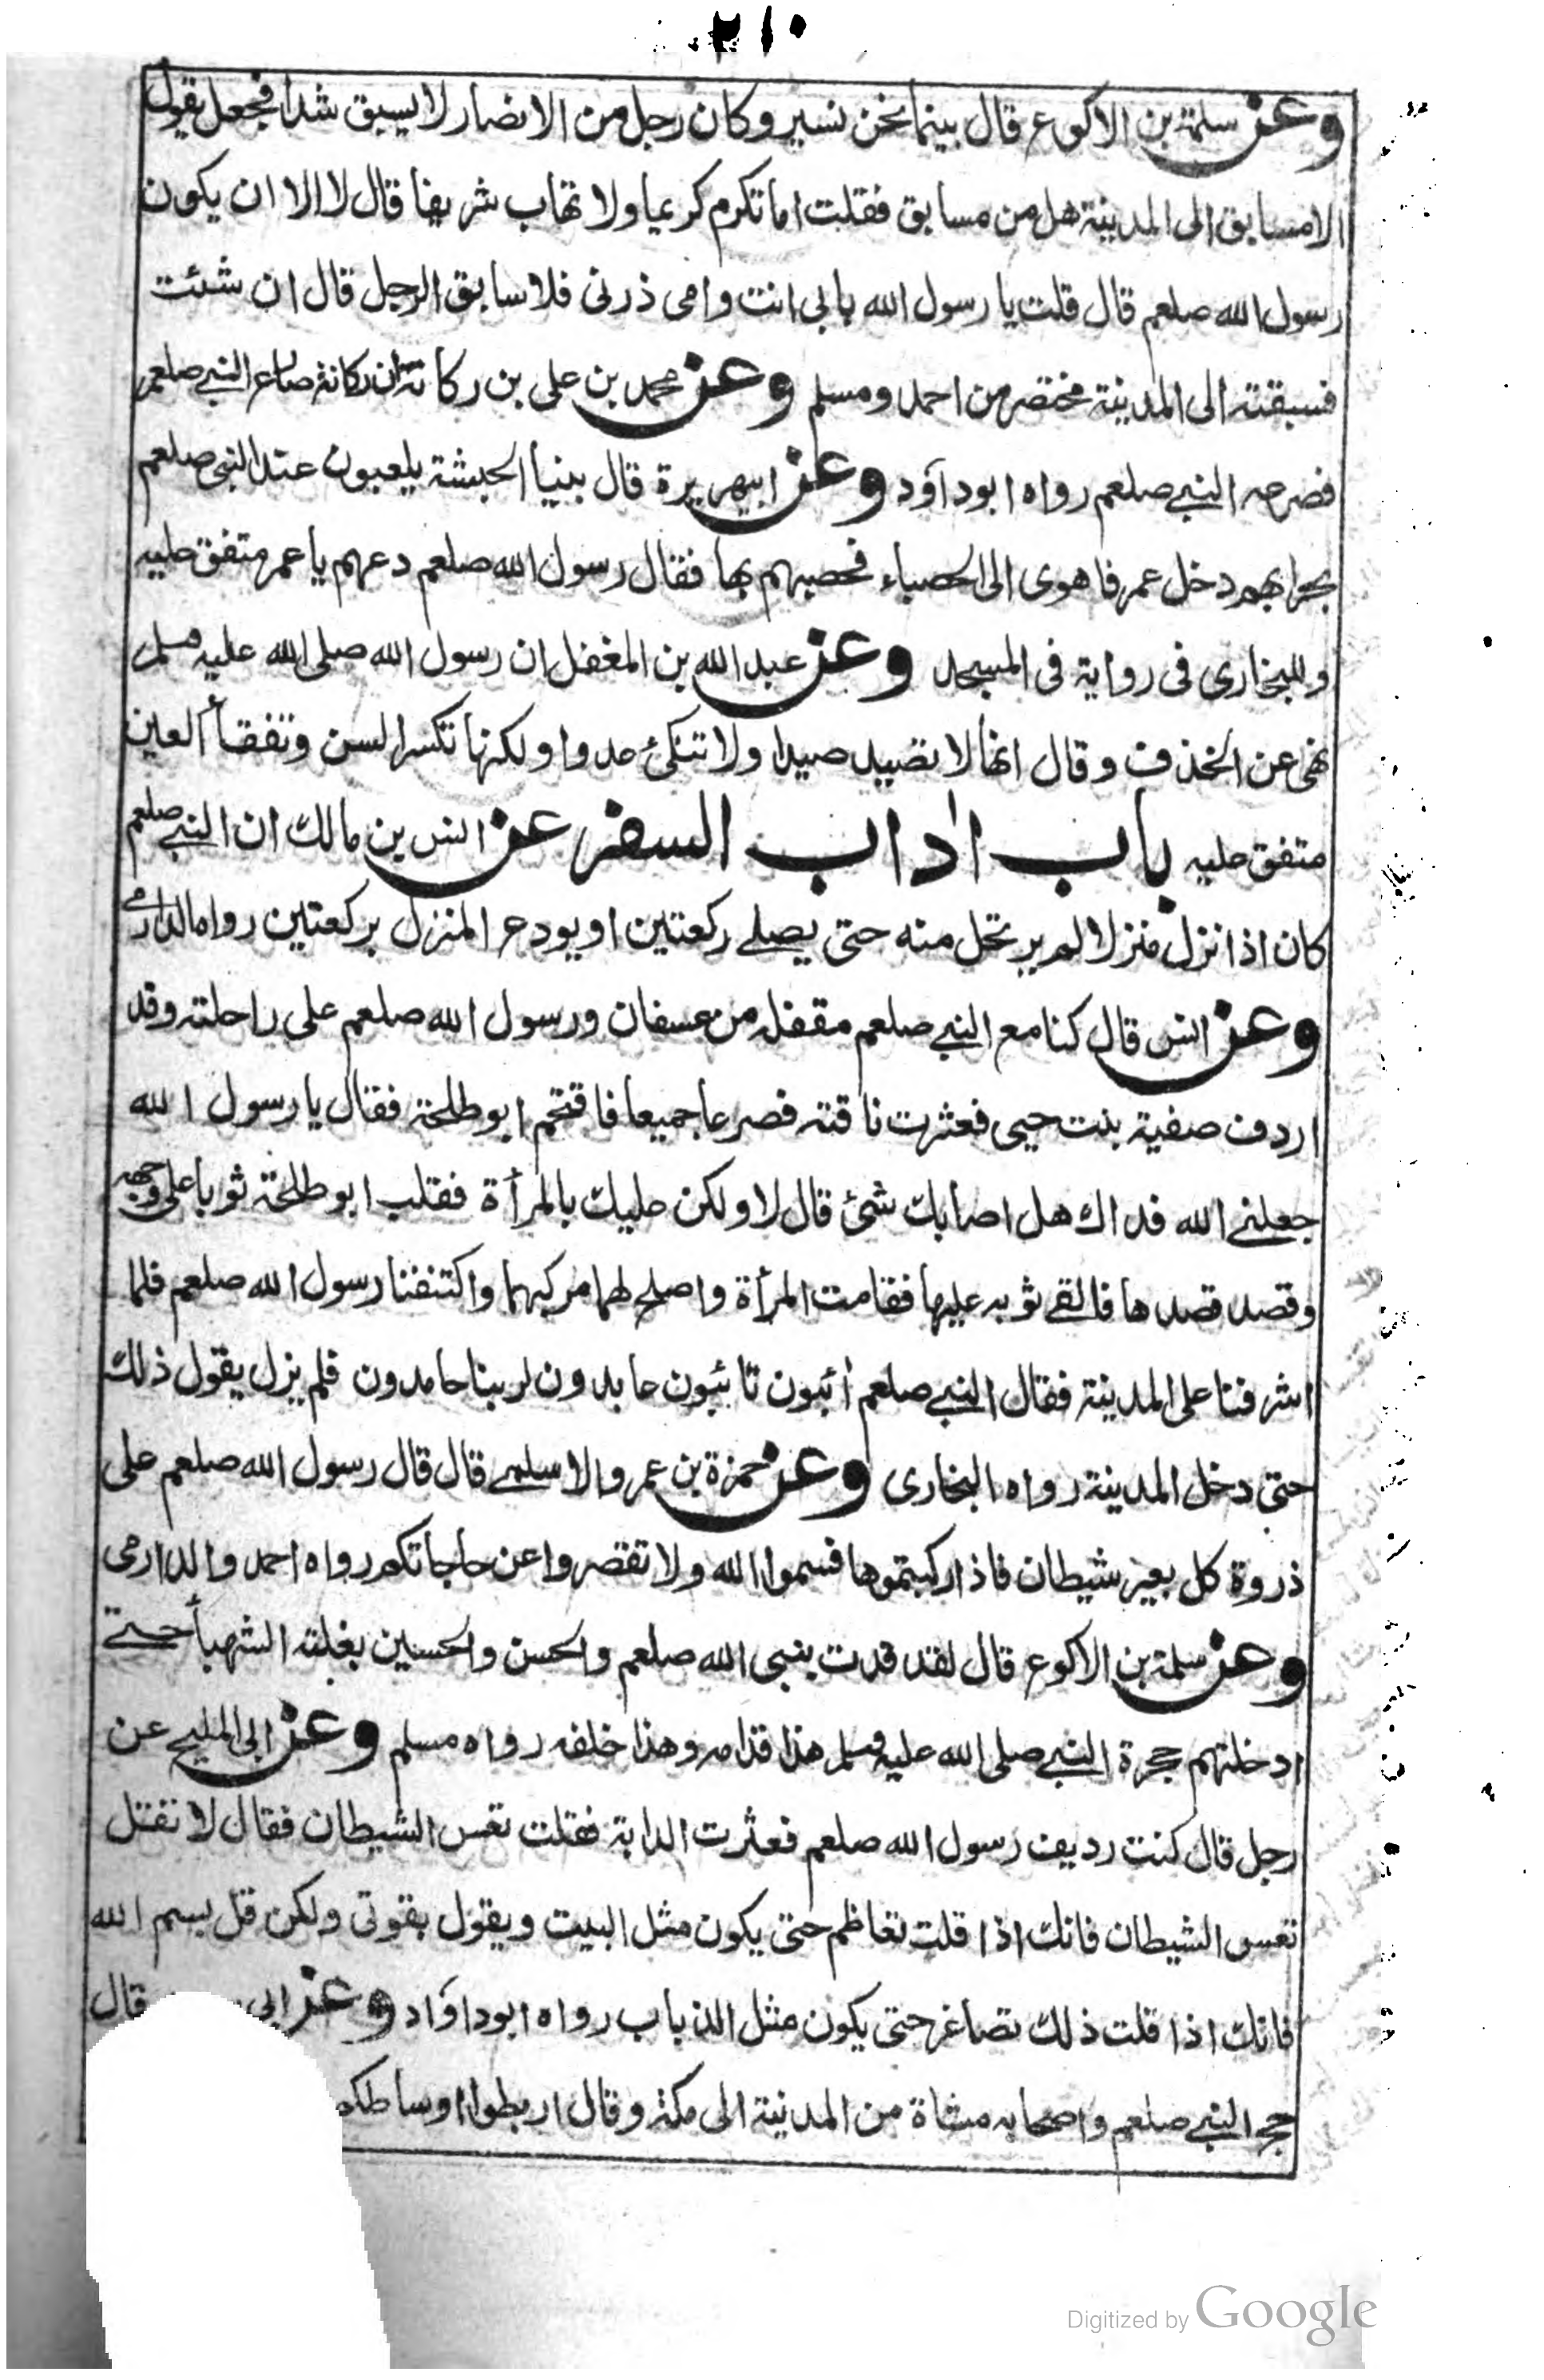 ٢١٠
وعن سلمة بن الاكوع قال بينما نحن نسير وكان رجل من الانصار لا يسبق شدا فجعل يقول
الا مسابق الى المدينة هل من مسابق فقلت اما تكرم كريما ولا تهاب شريفا قال لا الا ان يكون
رسول الله صلعم قال قلت يا رسول الله بابى انت وامى ذرنى فلاسابق الرجل قال ان شئت
فسبقته الى المدينة مختصر من احمد ومسلم وعن محمد بن على بن ركانة ان ركانة صارع النبي صلعم
فصرعه النبي صلعم رواه ابوداود وعن ابيهريرة قال بينا الحبشة يلعبون عند النبى صلعم
بحرابهم دخل عمر فاهوى الى الحصباء فحصبهم بها فقال رسول الله صلعم دعهم يا عمر متفق عليه
وللبخارى فى رواية فى المسجد وعن عبد الله بن المغفل ان رسول الله صلى الله عليه وسلم
نهى عن الخذف وقال انها لا تصيد صيدا ولا تنكئ عدوا ولكنها تكسر السن وتفقأ العين
متفق عليه باب اداب السفر عن انس بن مالك ان النبي صلعم
كان اذا نزل منزلا لم يرتحل منه حتى يصلے ركعتين او يودع المنزل بركعتين رواه الدارمے
وعن انس قال كنا مع النبي صلعم مقفله من عسفان ورسول الله صلعم على راحلته وقد
اردف صفية بنت حيى فعثرت ناقته فصرعا جميعا فاقتحم ابو طلحة فقال يا رسول الله
جعلنے الله فداك هل اصابك شئ قال لا ولكن عليك بالمرأة فقلب ابو طلحة ثوبا على وجهه
وقصد قصدها فالقے ثوبه عليها فقامت المرأة واصلح لهما مركبهما واكتنفنا رسول الله صلعم فلما
اشرفنا على المدينة فقال النبي صلعم أئبون تائبون عابدون لربنا حامدون فلم يزل يقول ذلك
حتى دخل المدينة رواه البخارى وعن حمزة بن عمرو الاسلمے قال قال رسول الله صلعم على
ذروة كل بعير شيطان فاذا ركبتموها فسموا الله ولا تقصروا عن حاجاتكم رواه احمد والدارمى
وعن سلمة بن الاكوع قال لقد قدت بنبى الله صلعم والحسن والحسين بغلته الشهبأ حتے
ادخلتهم حجرة النبي صلى الله عليه وسلم هذا قدامه وهذا خلفه رواه مسلم وعن ابى المليح عن
رجل قال كنت رديف رسول الله صلعم فعثرت الدابة فقلت تعس الشيطان فقال لا تقتل
تعس الشيطان فانك اذا قلت تعاظم حتى يكون مثل البيت ويقول بقوتى ولكن قل بسم الله
فانك اذا قلت ذلك تصاغر حتى يكون مثل الذباب رواه ابوداؤد وعن ابى قال
حج النبي صلعم واصحابه مشاة من المدينة الى مكة وقال اربطوا اوساطكم
Digitized by Google